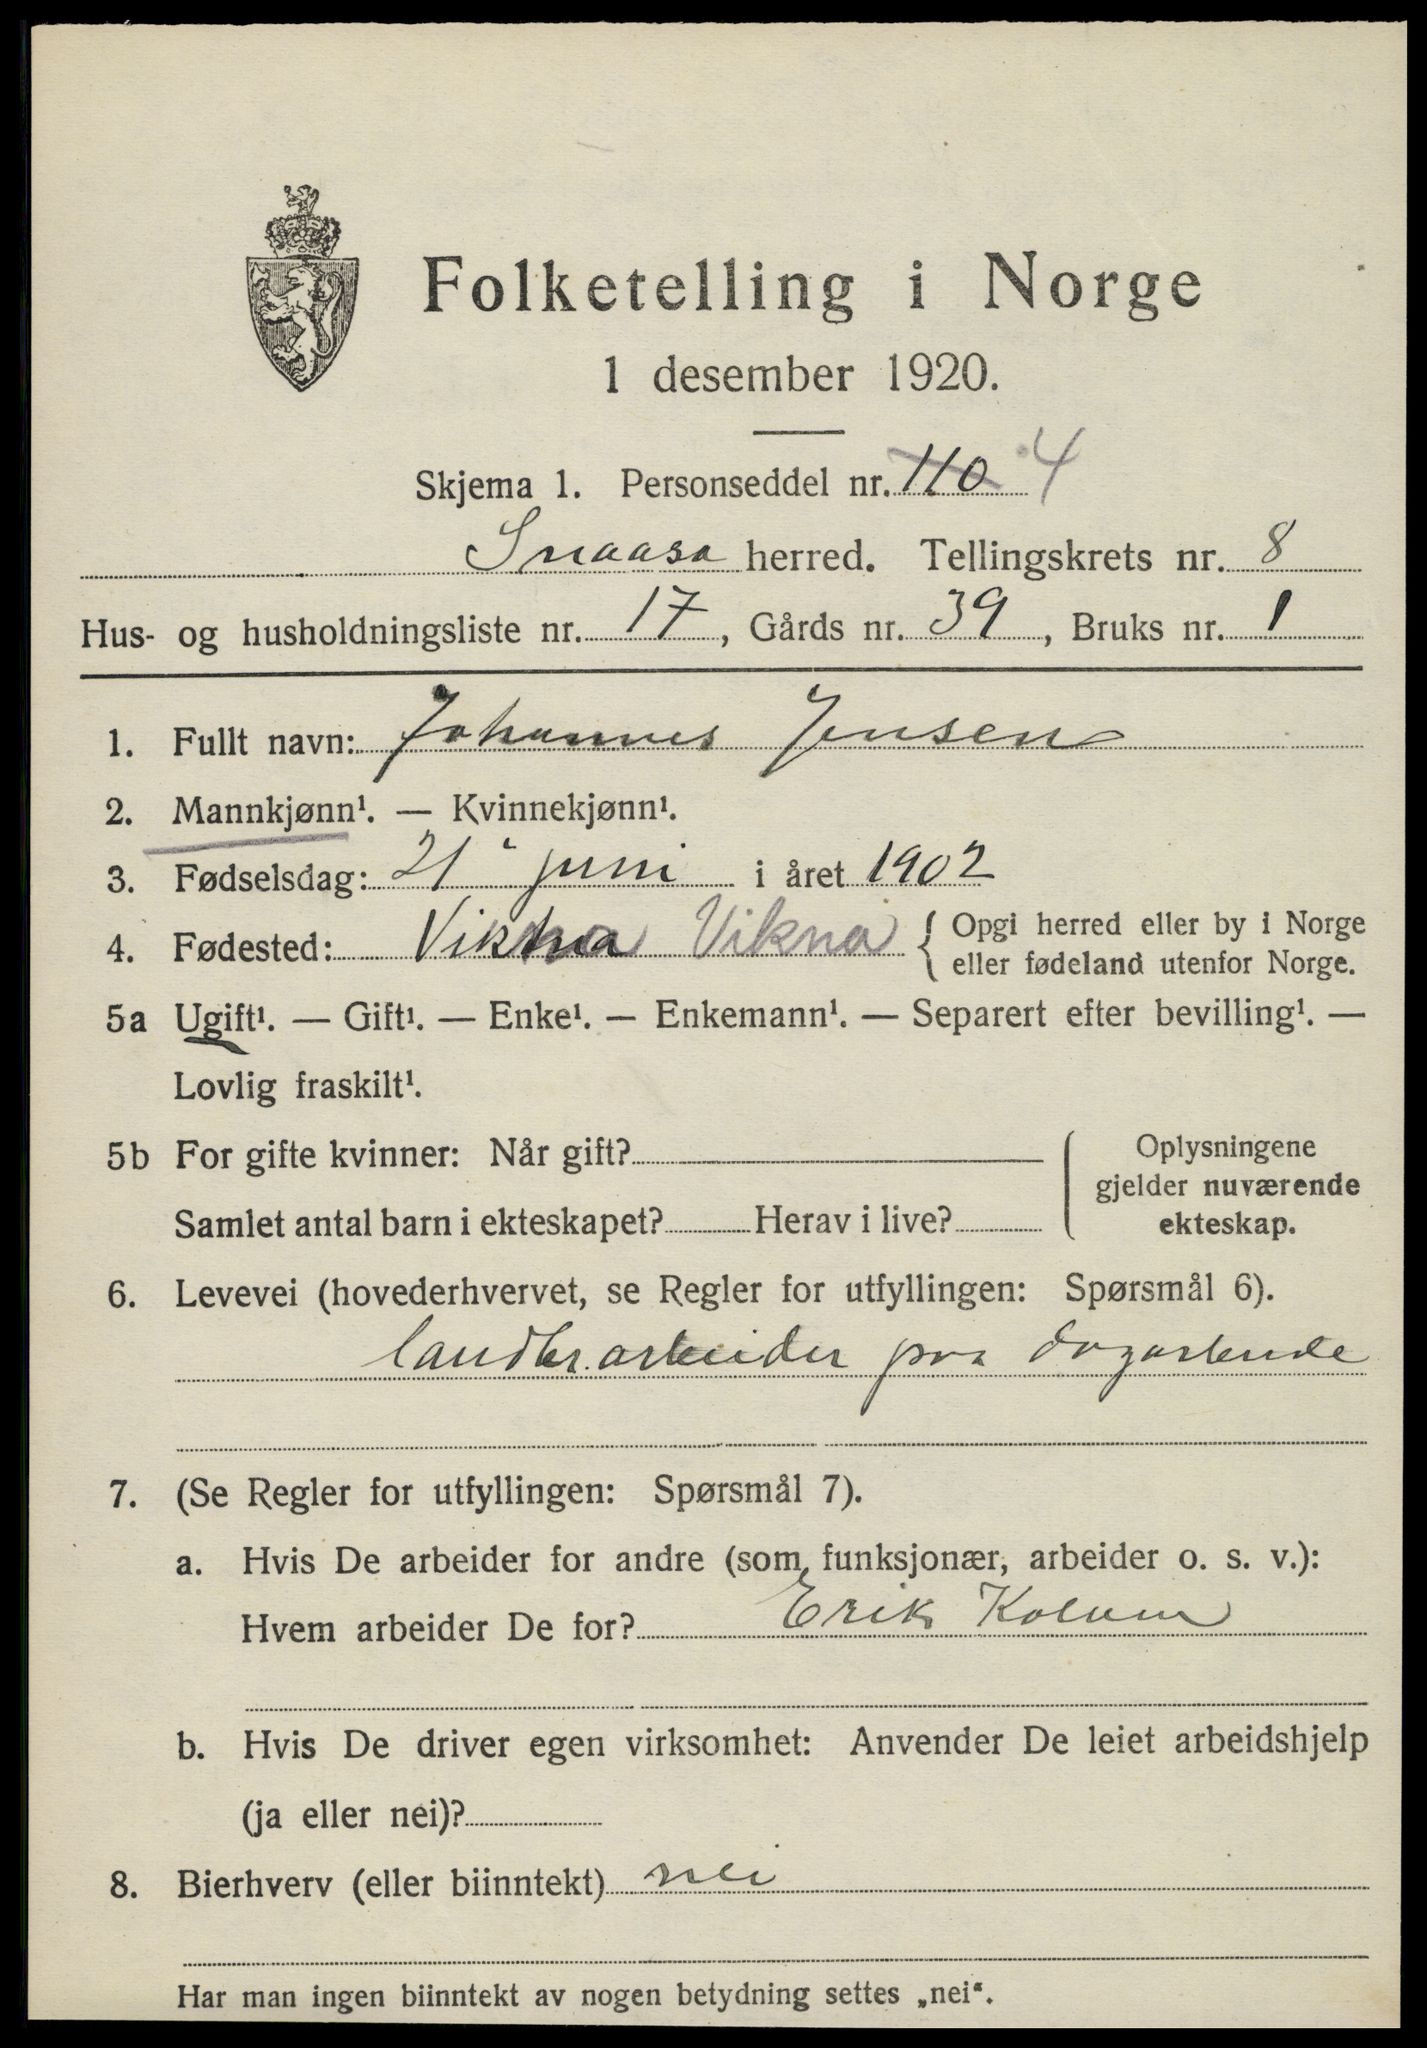 Folketelling i Norge
1 desember 1920.
Skjema 1. Personseddel nr. 110 4
Snaasa herred. Tellingskrets nr. 8
Hus- og husholdningsliste nr. 17, Gårds nr. 39, Bruks nr. 1
1. Fullt navn: Johannes Jensen
2. Mannkjønn¹. — Kvinnekjønn¹.
3. Fødselsdag: 21 juni i året 1902
4. Fødested: Vikna Vikna { Opgi herred eller by i Norge
eller fødeland utenfor Norge.
5a Ugift¹. — Gift¹. — Enke¹. — Enkemann¹. — Separert efter bevilling¹. —
Lovlig fraskilt¹.
5b For gifte kvinner: Når gift?
Samlet antal barn i ekteskapet? Herav i live?
Oplysningene
gjelder nuværende
ekteskap.
6. Levevei (hovederhvervet, se Regler for utfyllingen: Spørsmål 6).
landbr. arbeider paa
7. (Se Regler for utfyllingen: Spørsmål 7).
a. Hvis De arbeider for andre (som funksjonær, arbeider o. s. v.):
Hvem arbeider De for? Erik
b. Hvis De driver egen virksomhet: Anvender De leiet arbeidshjelp
(ja eller nei)?
8. Bierhverv (eller biinntekt) nei
Har man ingen biinntekt av nogen betydning settes „nei“.